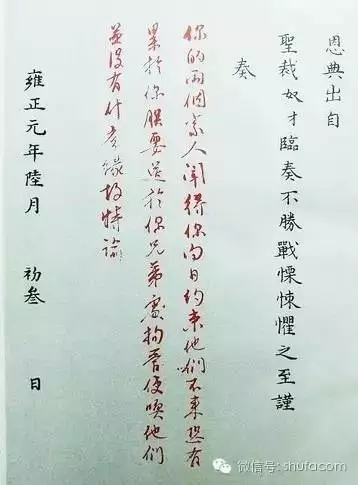 恩典出自
聖裁奴才臨奏不勝戰慄悚懼之至謹
奏
你的兩個家人聞得你向日約束他們不來恐有
累於你朕要送於你兄弟處拘管使喚他們
並沒有什麼緣故特諭
雍正元年陸月 初叁 日
微信号: shufacom